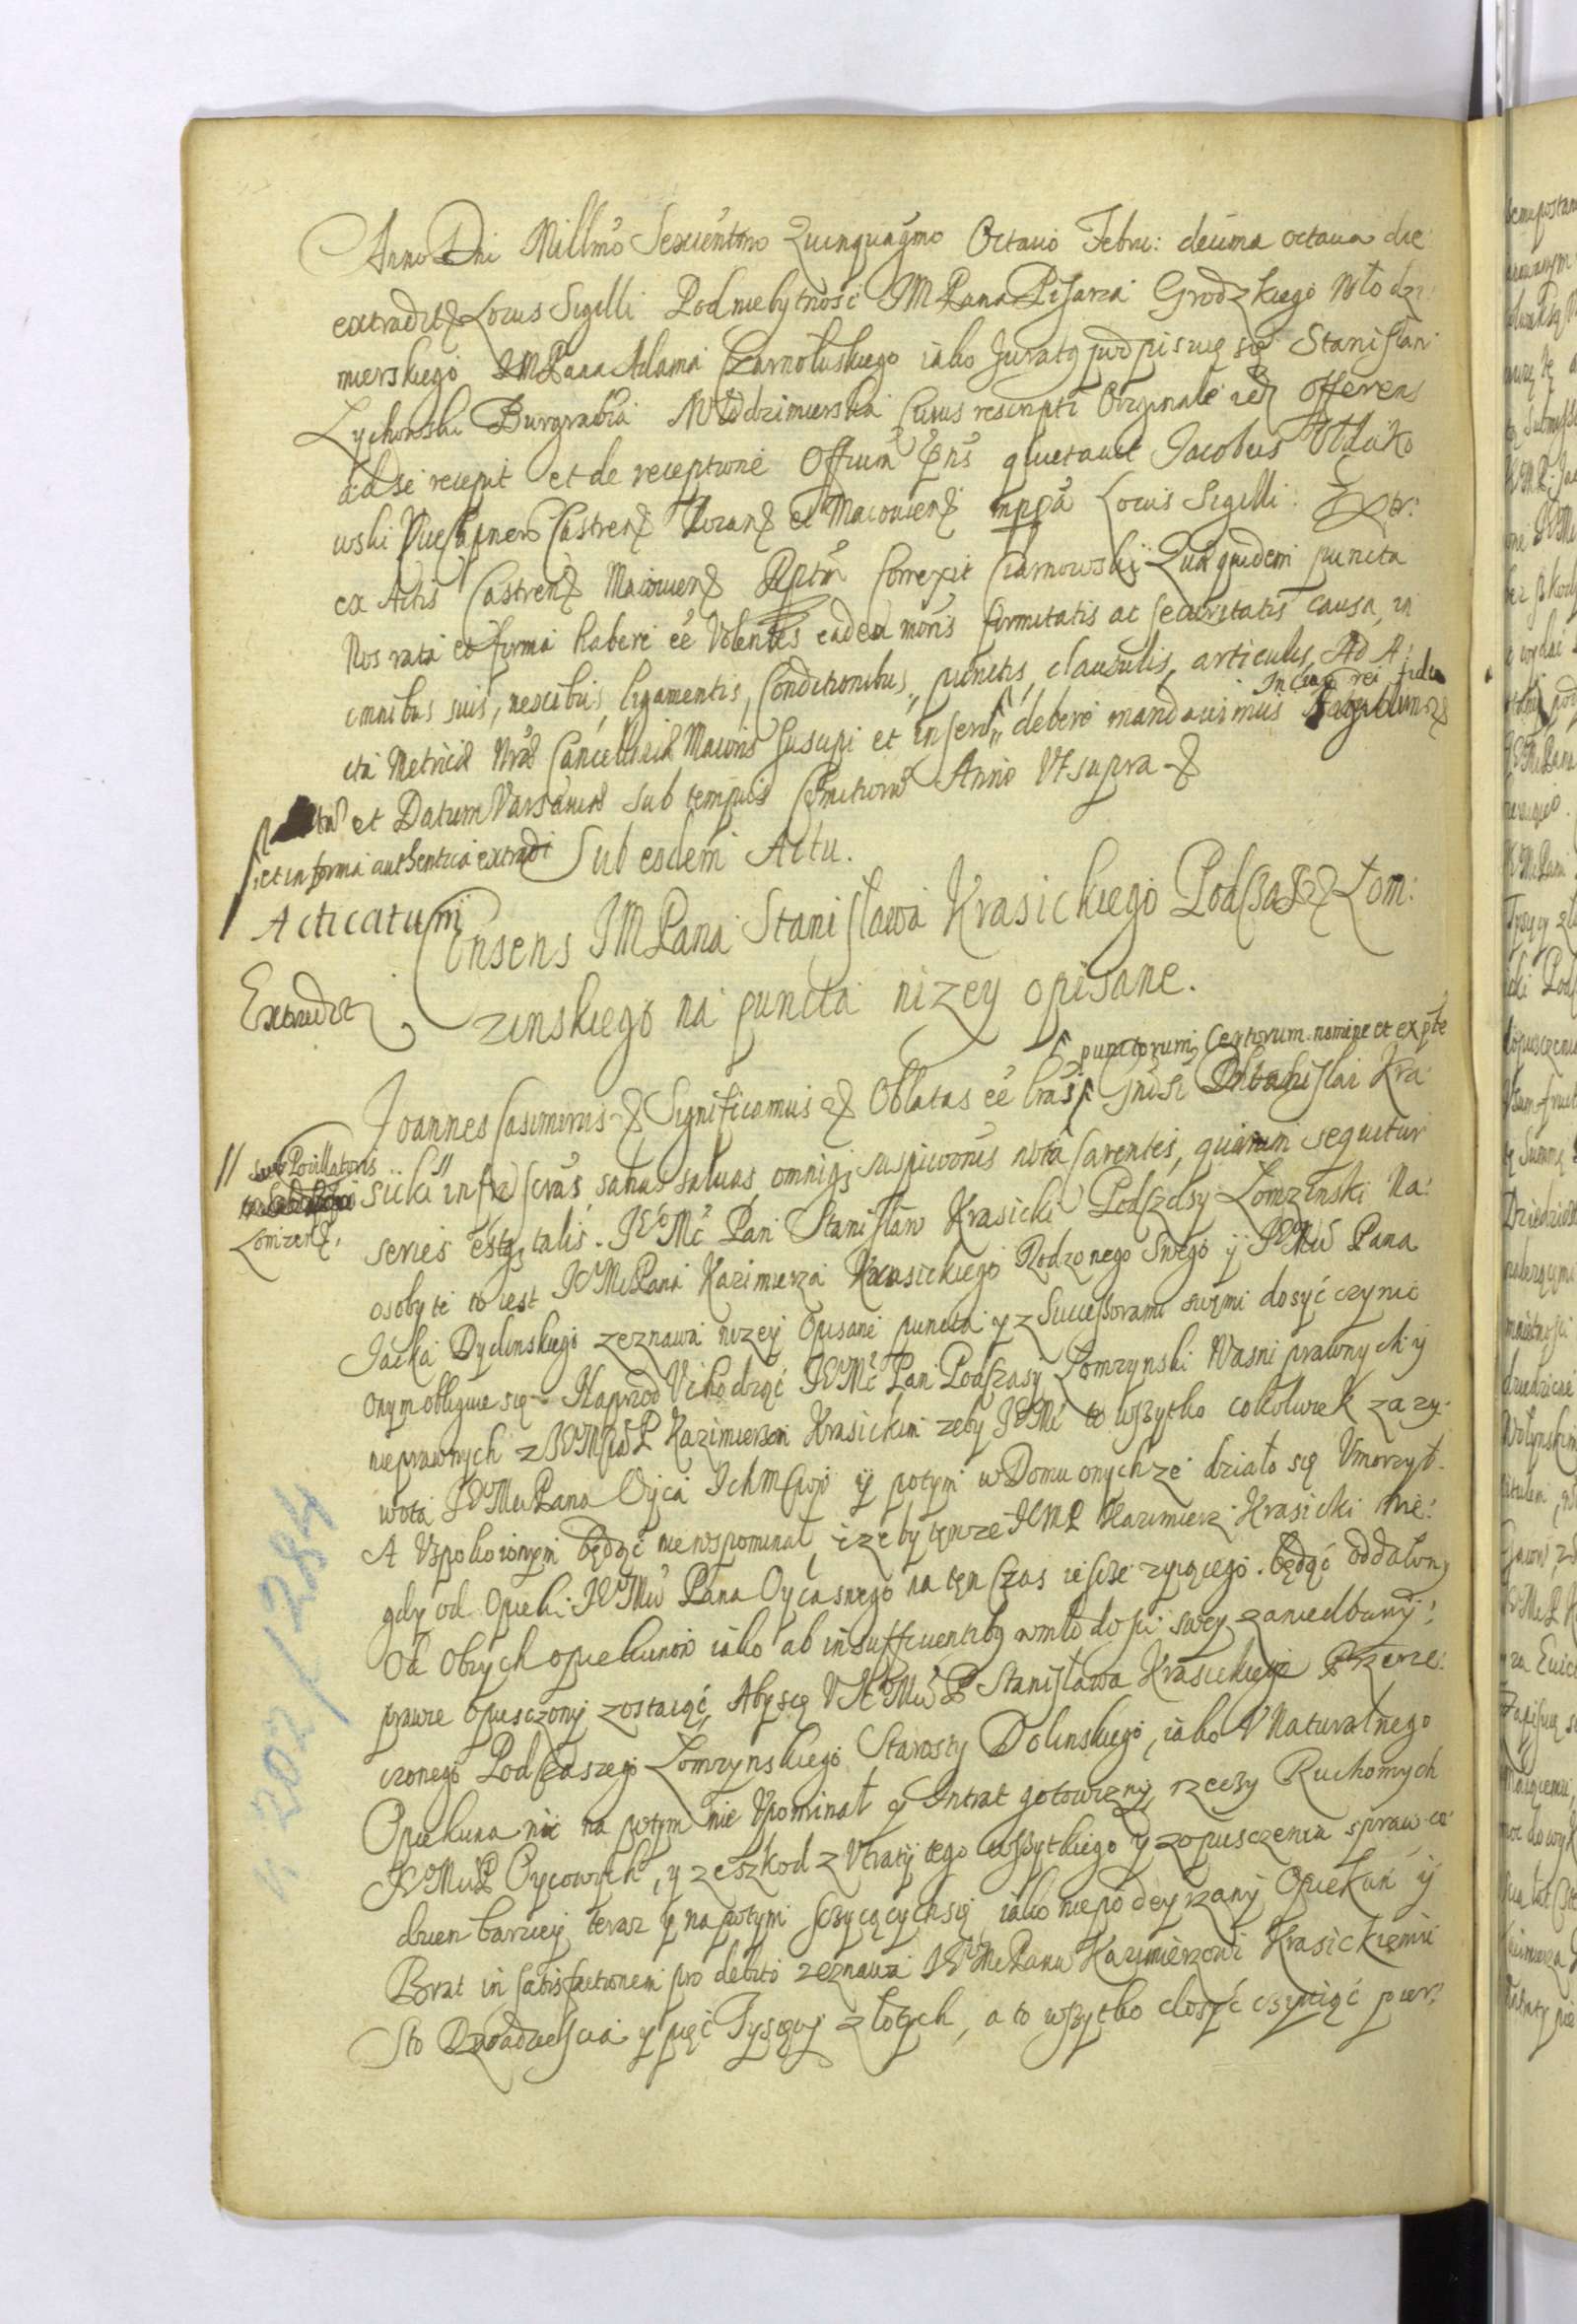 Anno Dni Millmo Sexcentmo Quinquagmo Octauo Febru: decima octaua die
extradit Locus Sigilli Pod niebytnosć JM Pana Pisarza Grodzkiego Włodzi:
mierskiego JMPana Adama Czarnołuskiego iako Jurat podpisuię się Stanisłaŵ
Lychowski Burgrabia Włodzimierski Cuius rescripti Originale idē Offerens
ad se recepit et de receptione Officium pns quietauit Jacobus
wski ViceCapneus Castren et Macouien mppa Locus Sigilli: Extr:
ex Actis Castren Macouien Rptm Correxit Czarnowskij Qua quidem puncta
Nos rata et firma haberi eē Volentes eadem moris firmitatis ac securitatis causa, in
omnibus suis, nexibus, ligamentis, Conditionibus, punctis, clausulis, articulis, Ad A:
cta Metrices Nrae Cancellariae Maioris suscipi et inseri debere mandauimus In cuius rei fidem
et Datum Varsauiae sub tempus Comitiorum Anno Vt supra
et in forma authentica extradi
Sub eodem Actu.
Acticatum
Consens JMPana Stanisława Krasickiego Podczasz Łom:
Extradit
zinskiego na puncta nizey opisane.
punctorum Certorum nomine et ex pte
Joannes Casimirus Significamus Oblatas eē lras Gnosi Stanislai Kra:
sub Pocillatoris
sicki infra scras, sanas saluas omniq suspicionis nota carentes, quarum sequitur
Lomzen,
series estq talis. Ic Mc Pan Stanisław Krasicki Podczaszy Łomzinski Na:
osoby te to iest Ic Mc Pana Kazimierza Krasickiego Rodzonego swego y Ic Mci Pana
Jacka Dydinskiego zeznawa nizey Opisane puncta y z Successorami swęmi dosyć czynic
onym obliguie się Naprzod Vchodząć Ic Mc Pan Podczaszy Łomzynski Wasni prawnych y
nieprawnych z Ic Mcią P Kazimierzem Krasickim zeby Ic Mc to wszytko cokolwiek za zy:
wota Ic Mci Pana Oyca Ichmciow y potym w Domu onych ze działo się Vmorzył
A Vspokoionym będąć nie wspominał, ize by tenze IcM P Kazimierz Krasicki nie:
gdy od Opieki Ic Mci Pana Oyca swego na ten czas iescze zyiącego. będąć oddalony
Od Obcych opiekunow iako ab insufficientiby w młodosci swey zaniedbany:
prawie opusczony zostaiąć, Aby się V Ic Mci P Stanisława Krasickiego Przerze:
czonego Podczaszego Łomzynskiego Starosty Dolinskiego, iako V Naturalnego
Opiekuna nic na potym nie Vpominał y Intrat gotowizny rzeczy Ruchomych
Ic Mci P Oycowych, y ze szkod z Vtraty tego wszytkiego y z opusczenia spraw co
dzien barziey teraz y na potym sczycących się iako niepodeyrzany Opiekun y
Brat in satisfactionem pro debito zeznawa Ic Mc Panu Kazimierzowi Krasickięmu
Sto Dwadziescia y pięć Tysięcy złotych, a to wszytko dosyć czyniąć pier:
K 202 / 284